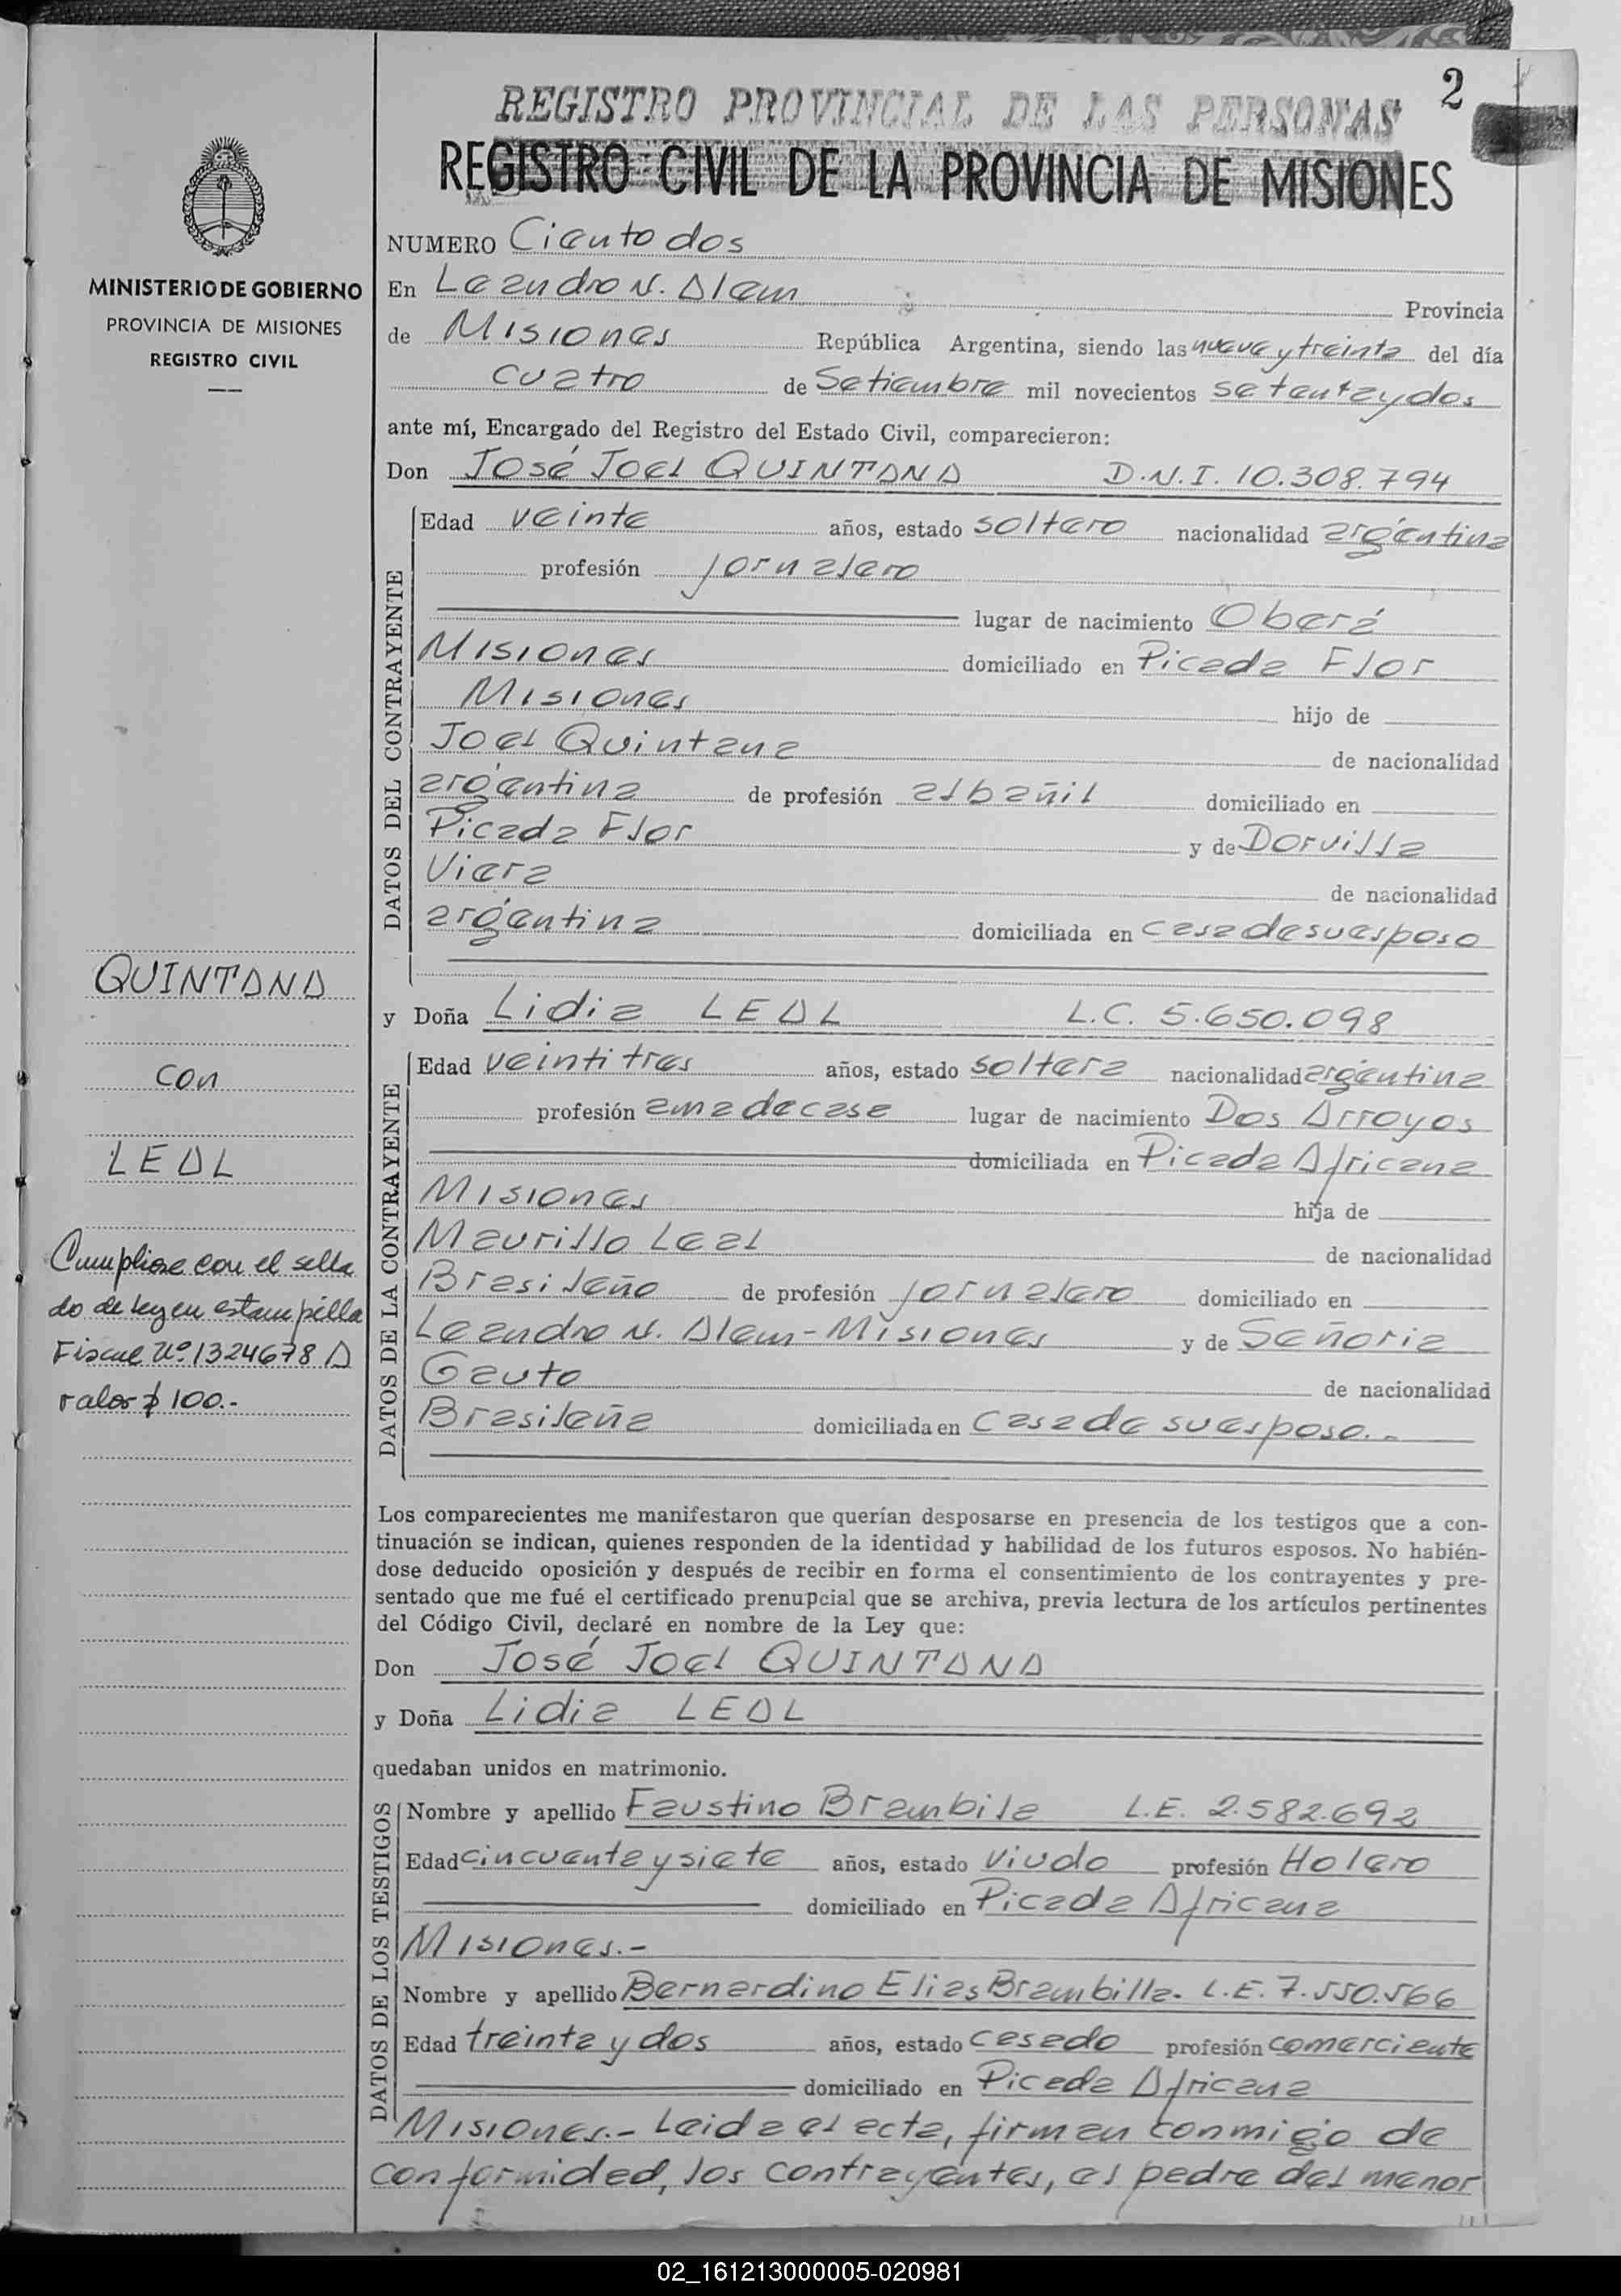 2
REGISTRO PROVINCIAL DE LAS PERSONAS
REGISTRO CIVIL DE LA PROVINCIA DE MISIONES
MINISTERIO DE GOBIERNO
PROVINCIA DE MISIONES
REGISTRO CIVIL
QUINTANA
con
LEAL
Cumpliose con el sella
do de ley en estampilla
Fiscal Nº 1324678 A
valor $ 100.-
NUMERO Ciento dos
En Leandro N. Alem Provincia
de Misiones República Argentina, siendo las nueve y treinta del día
cuatro de Setiembre mil novecientos setenta y dos
ante mí, Encargado del Registro del Estado Civil, comparecieron:
Don José Joel QUINTANA D.N.I. 10.308.794
DATOS DEL CONTRAYENTE
Edad veinte años, estado soltero nacionalidad argentina
profesión jornalero
lugar de nacimiento Oberá
Misiones domiciliado en Picada Flor
Misiones hijo de
Joel Quintana de nacionalidad
argentina de profesión albañil domiciliado en
Picada Flor y de Dorvilla
Viera de nacionalidad
argentina domiciliada en casa de su esposo
y Doña Lidia LEAL L.C. 5.650.098
DATOS DE LA CONTRAYENTE
Edad veintitres años, estado soltera nacionalidad argentina
profesión ama de casa lugar de nacimiento Dos Arroyos
domiciliada en Picada Africana
Misiones hija de
Maurillo Leal de nacionalidad
Brasileño de profesión jornalero domiciliado en
Leandro N. Alem - Misiones y de Señoria
Gauto de nacionalidad
Brasileña domiciliada en casa de su esposo.-
Los comparecientes me manifestaron que querían desposarse en presencia de los testigos que a con-
tinuación se indican, quienes responden de la identidad y habilidad de los futuros esposos. No habién-
dose deducido oposición y después de recibir en forma el consentimiento de los contrayentes y pre-
sentado que me fué el certificado prenupcial que se archiva, previa lectura de los artículos pertinentes
del Código Civil, declaré en nombre de la Ley que:
Don José Joel QUINTANA
y Doña Lidia LEAL
quedaban unidos en matrimonio.
DATOS DE LOS TESTIGOS
Nombre y apellido Faustino Brambila L.E. 2.582.692
Edad cincuenta y siete años, estado viudo profesión Holero
domiciliado en Picada Africana
Misiones.-
Nombre y apellido Bernardino Elias Brambilla. L.E. 7.550.566
Edad treinta y dos años, estado casado profesión comerciante
domiciliado en Picada Africana
Misiones.- Leida el acta, firman conmigo de
conformidad, los contrayentes, el padre del menor
02_161213000005-020981